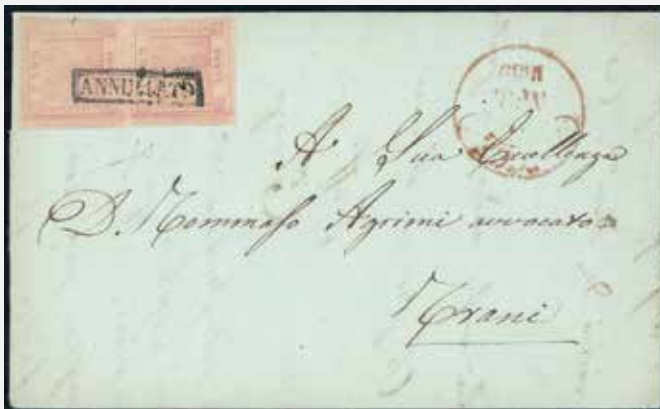 ANNULLATO
A Sua Eccellenza
D. Tommaso Agrimi avvocato
Trani